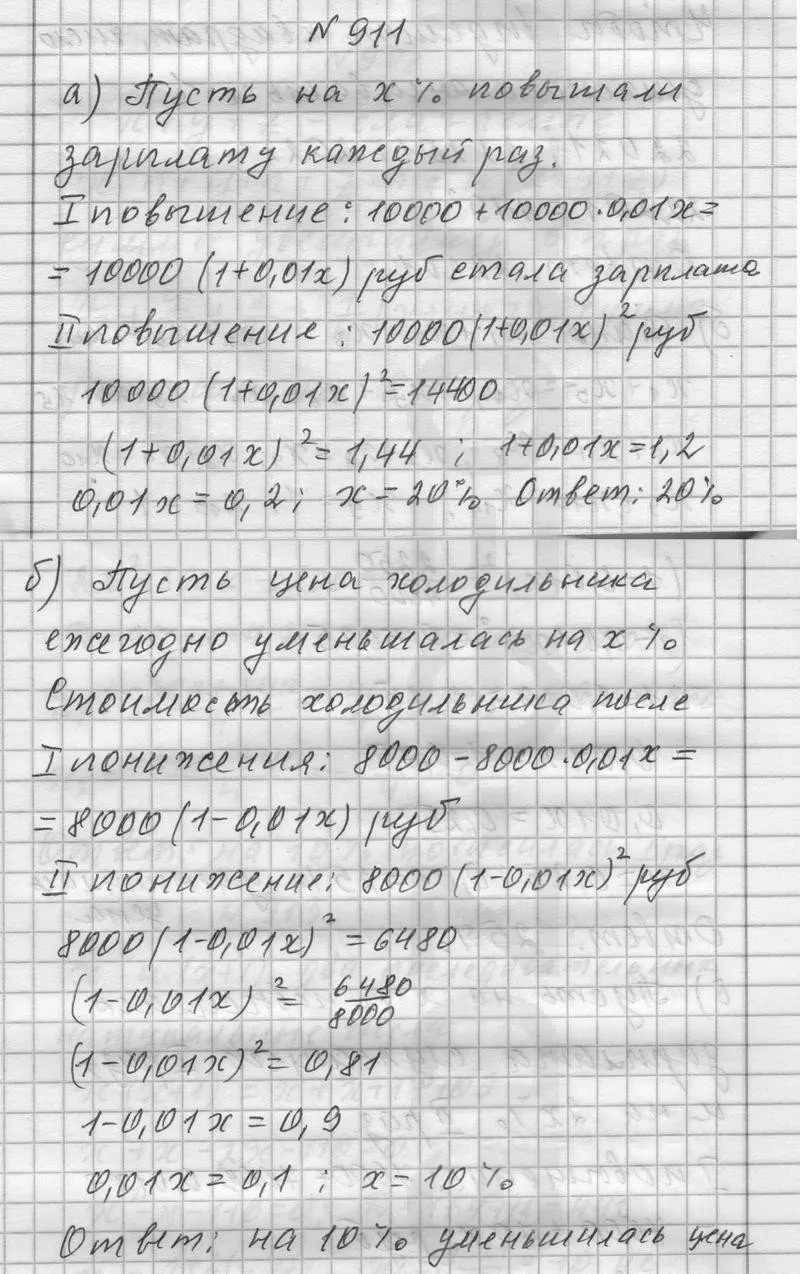 № 911
а) Пусть на x % повышали
зарплату каждый раз.
I повышение: 10000 + 10000 · 0,01x =
= 10000 (1+0,01x) руб стала зарплата
II повышение: 10000(1+0,01x)² руб
10000 (1+0,01x)² = 14400
(1+0,01x)² = 1,44 ; 1+0,01x = 1,2
0,01x = 0,2 ; x = 20% Ответ: 20%
б) Пусть цена холодильника
ежегодно уменьшалась на x %
Стоимость холодильника после
I понижения: 8000 - 8000 · 0,01x =
= 8000 (1-0,01x) руб
II понижение: 8000 (1-0,01x)² руб
8000 (1-0,01x)² = 6480
(1-0,01x)² = 6480/8000
(1-0,01x)² = 0,81
1-0,01x = 0,9
0,01x = 0,1 ; x = 10%
Ответ: на 10% уменьшилась цена